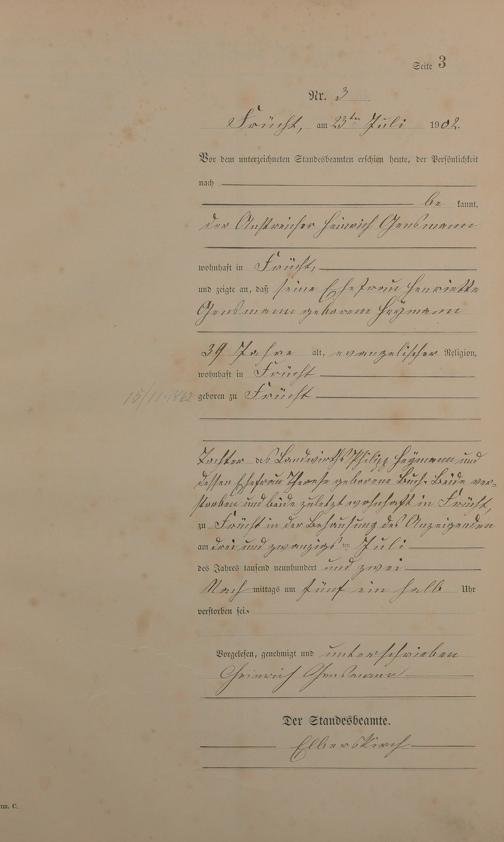 Seite 3
Nr. 3
Frücht, am 23ten Juli 1902.
Vor dem unterzeichneten Standesbeamten erschien heute, der Persönlichkeit
nach
be kannt,
der Anstreicher Heinrich Gensmann
wohnhaft in Frücht,
und zeigte an, daß seine Ehefrau Henriette
Gensmann geborene Heymann
39 Jahre alt, evangelischer Religion,
wohnhaft in Frücht
15/11.1862 geboren zu Frücht
Tochter des Landwirths Philipp Heymann und
dessen Ehefrau Therese geborene Buch. Beide ver-
storben und beide zuletzt wohnhaft in Frücht,
zu Frücht in der Behausung des Anzeigenden
am drei und zwanzigsten Juli
des Jahres tausend neunhundert und zwei
Nach mittags um fünf ein halb Uhr
verstorben sei.
Vorgelesen, genehmigt und unterschrieben
Heinrich Gensmann
Der Standesbeamte.
Elberskirch
m. C.